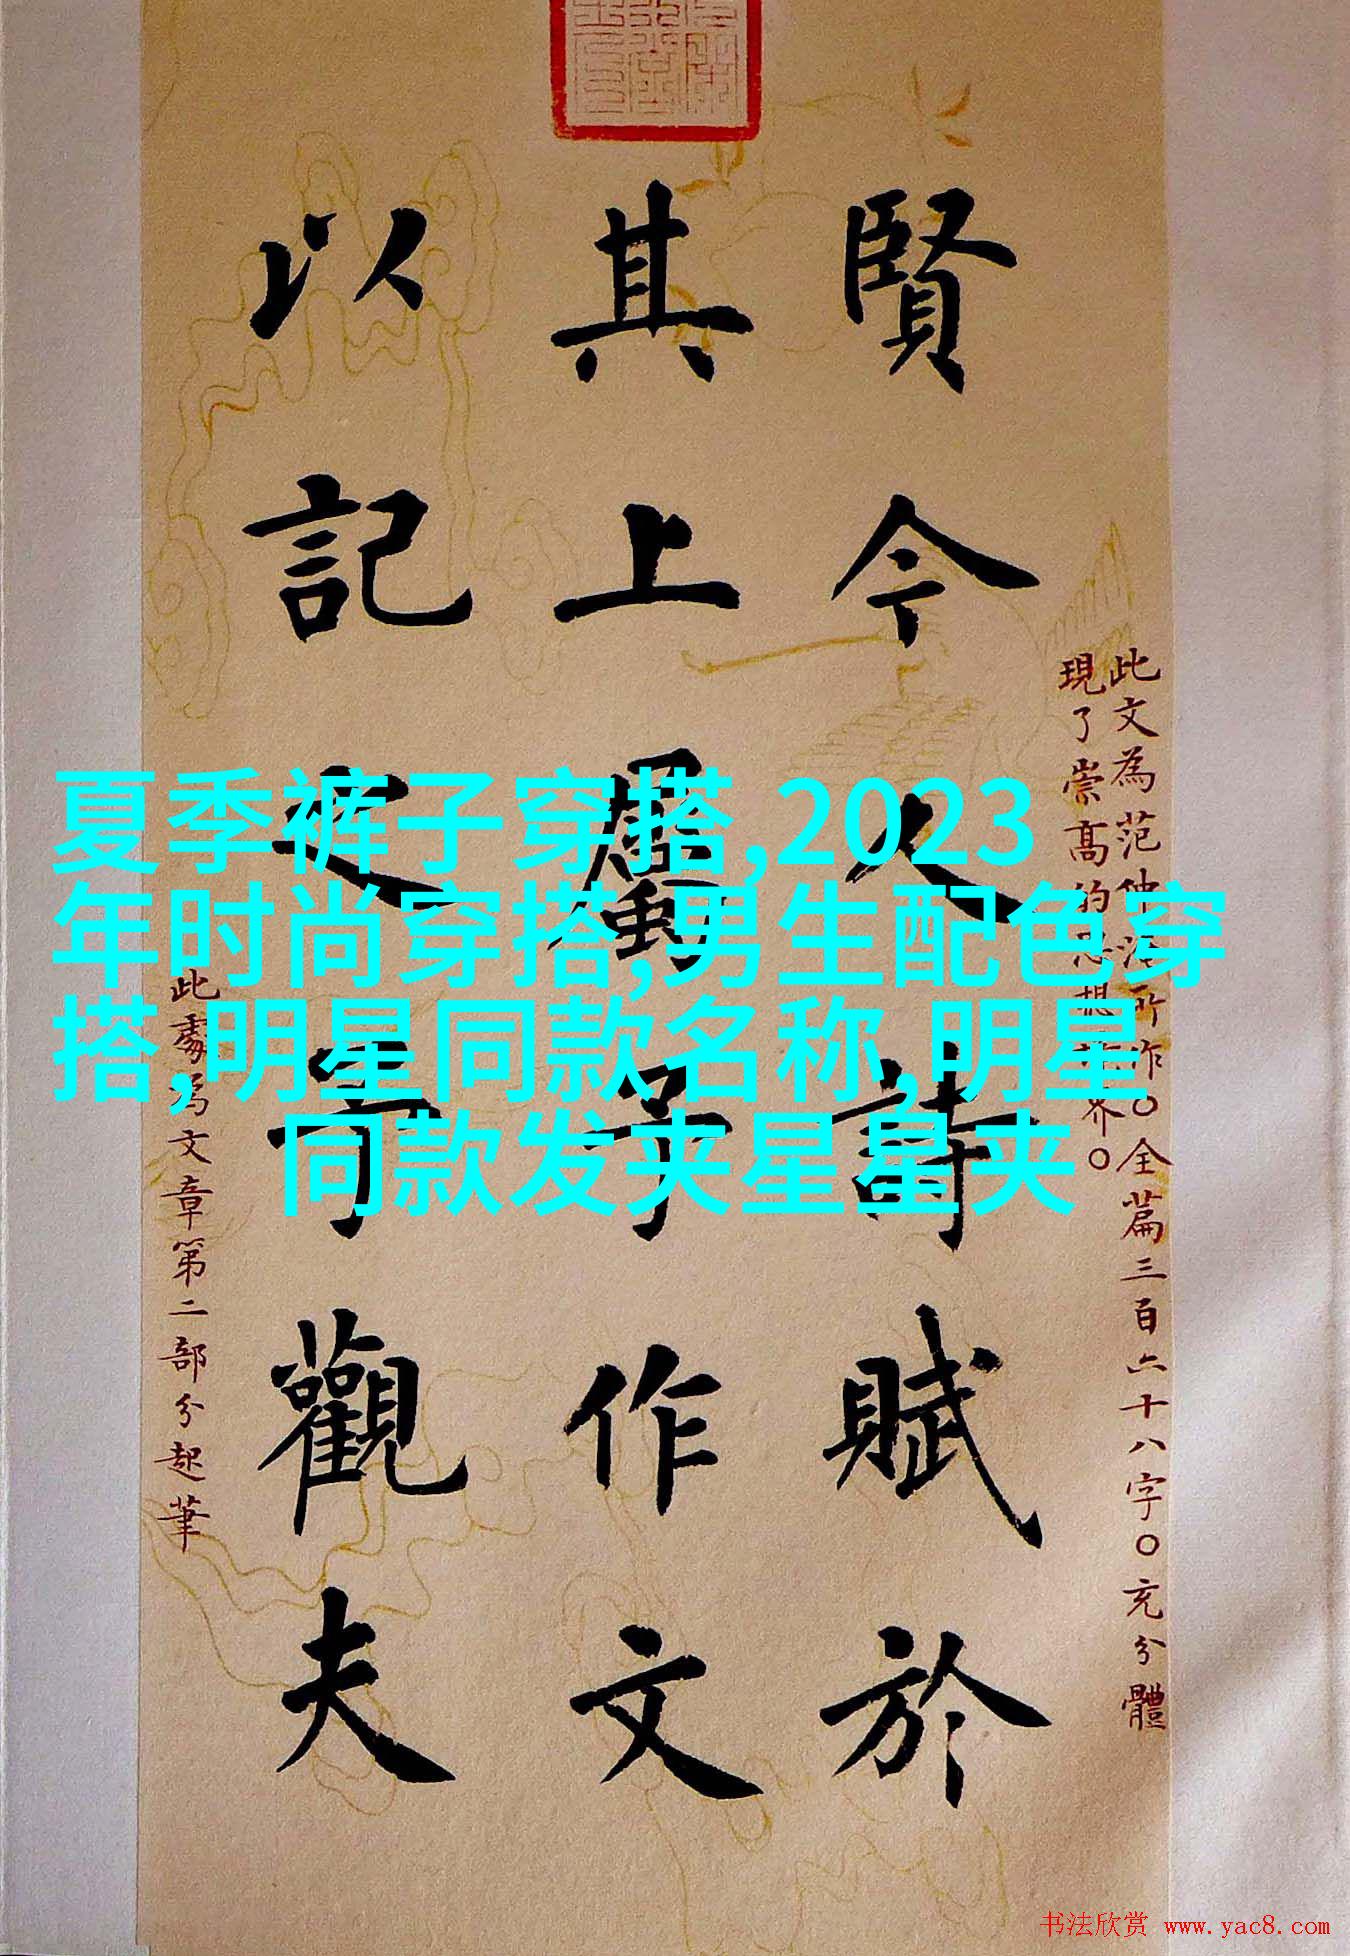 賢今人詩賦於
其上屬予作文
以記之予觀夫
此文為范仲淹所作。全篇三百六十八字。充分體
現了崇高的思想境界。
此處為文章第二部分起筆
夏季裤子穿搭,2023
年时尚穿搭,男生配色穿
搭,明星同款名称,明星
同款发夹星星夹
书法欣赏 www.yac8.com